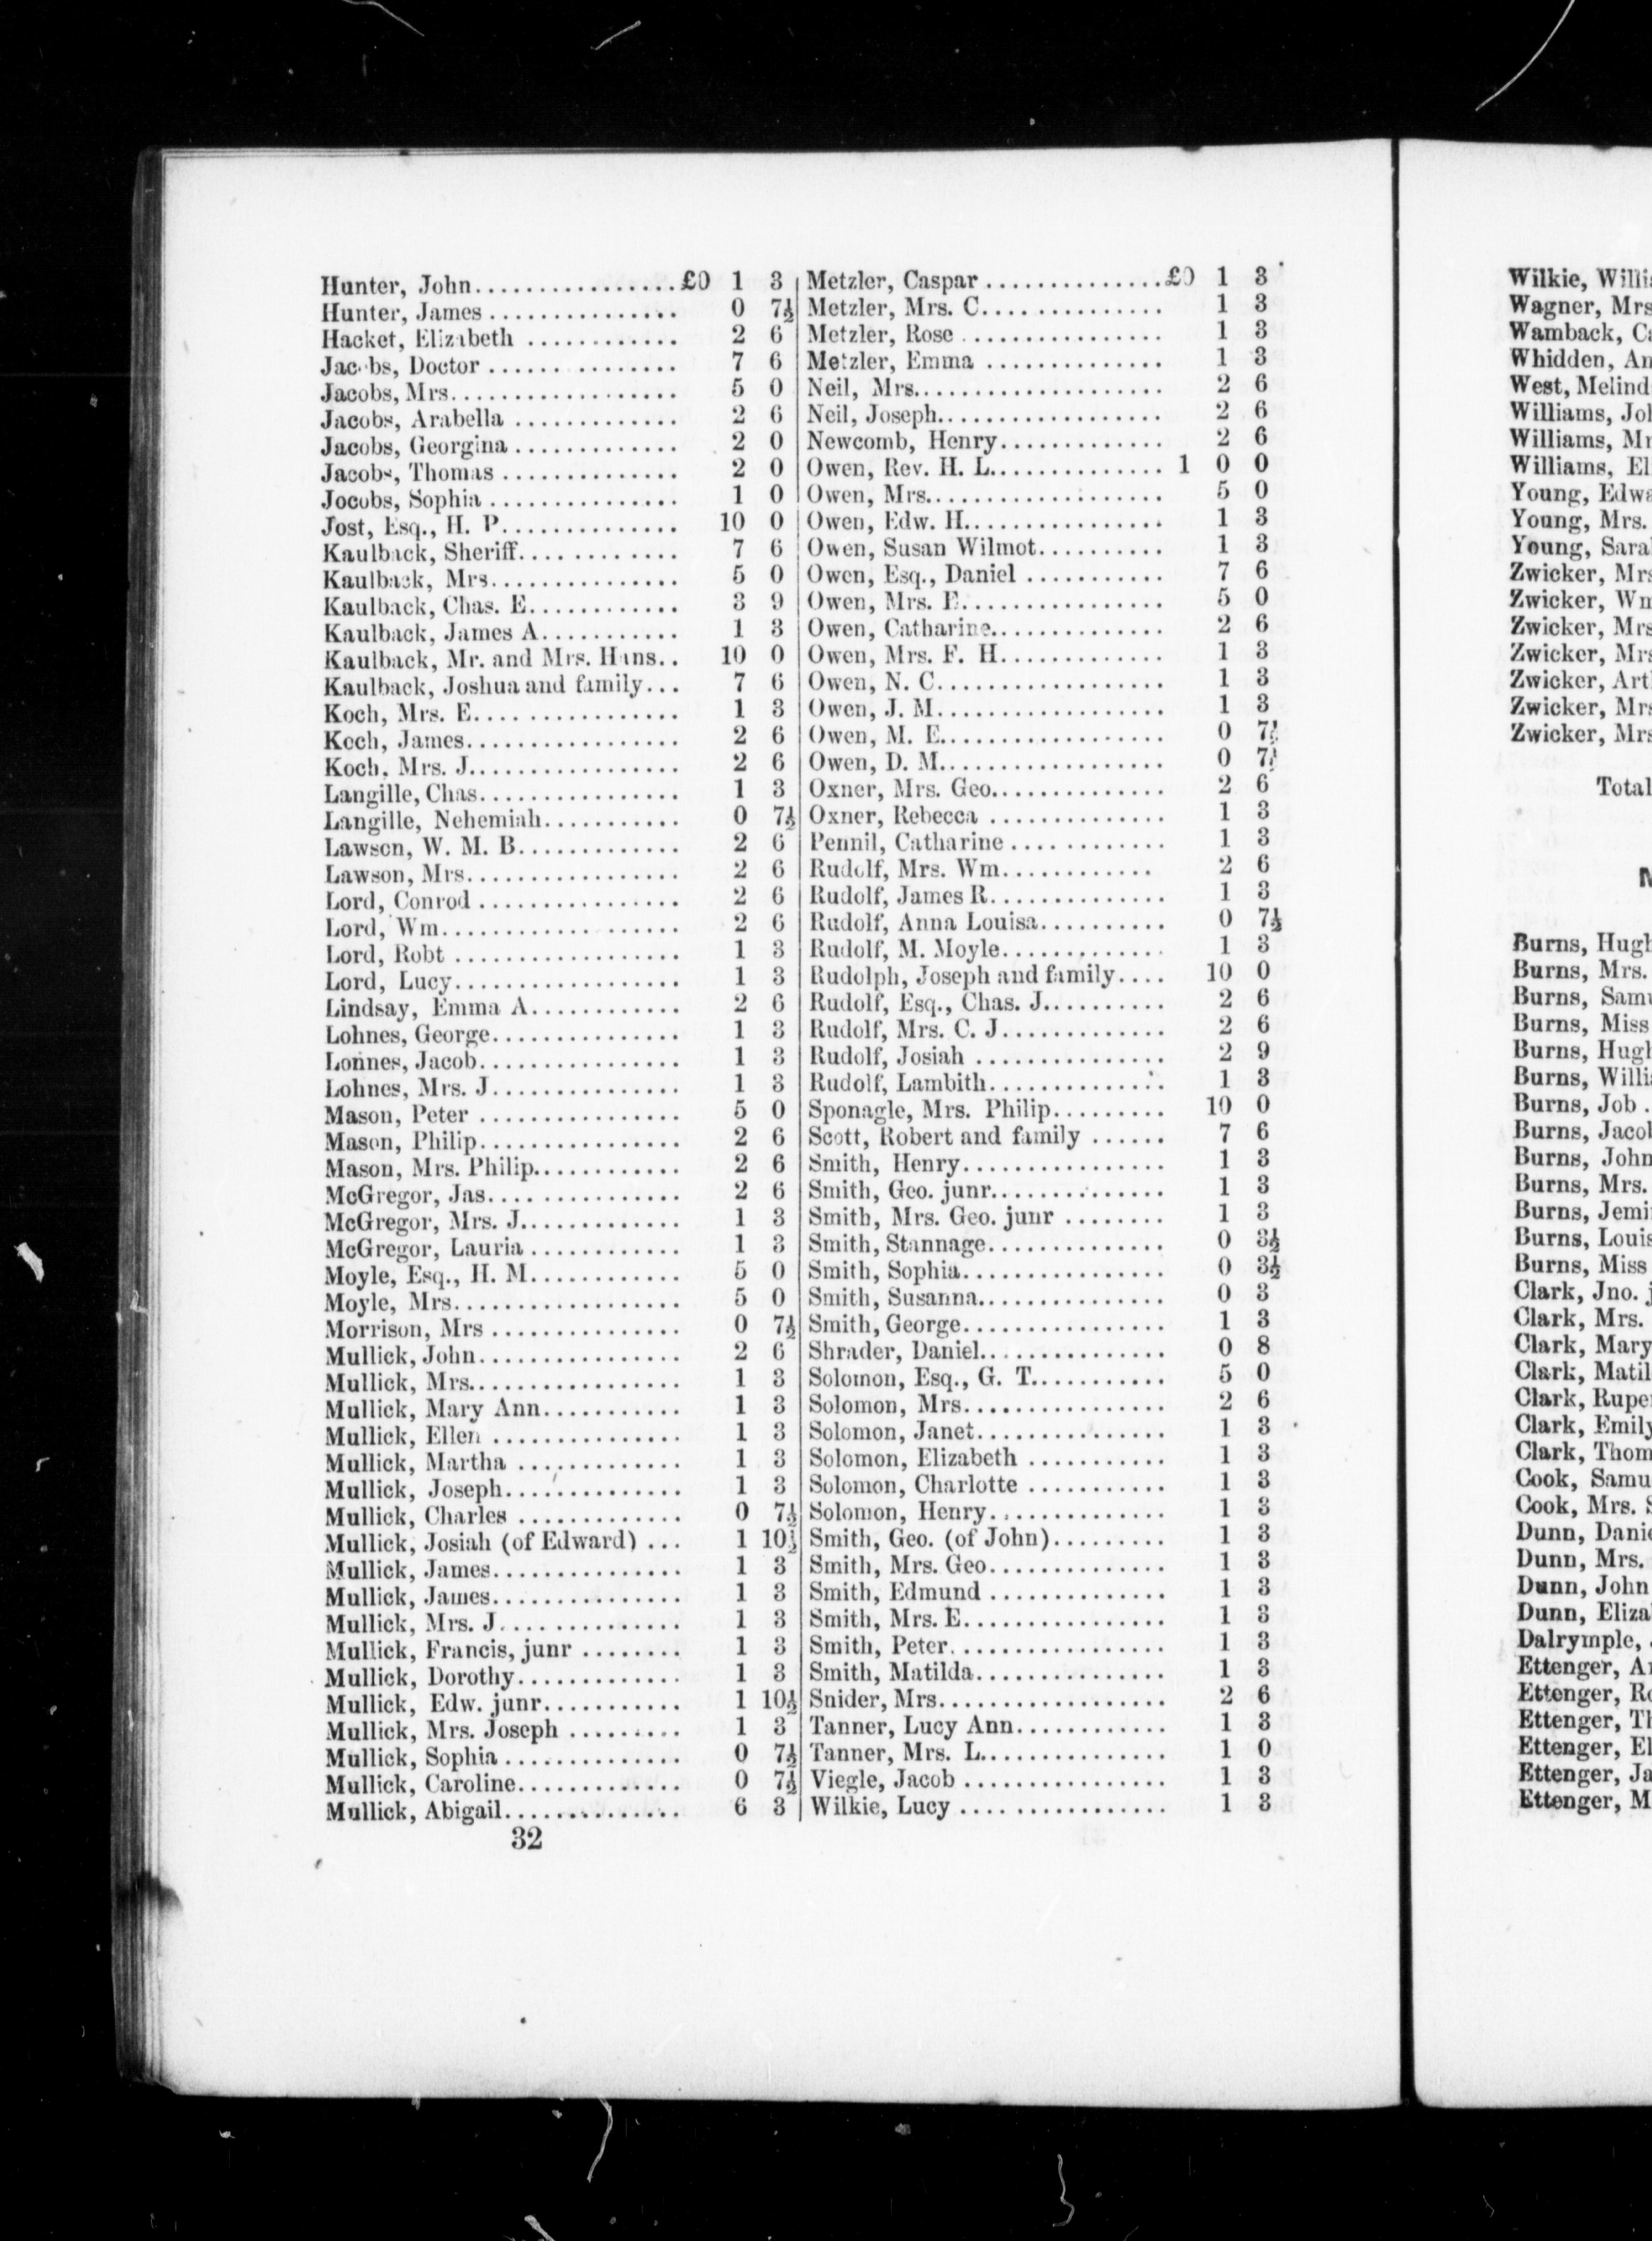 Hunter, John................£0 1 3
Hunter, James............... 0 7½
Hacket, Elizabeth ............ 2 6
Jacobs, Doctor ............... 7 6
Jacobs, Mrs.................. 5 0
Jacobs, Arabella ............. 2 6
Jacobs, Georgina ............. 2 0
Jacobs, Thomas .............. 2 0
Jocobs, Sophia ............... 1 0
Jost, Esq., H. P.............. 10 0
Kaulback, Sheriff............. 7 6
Kaulback, Mrs............... 5 0
Kaulback, Chas. E............ 3 9
Kaulback, James A........... 1 3
Kaulback, Mr. and Mrs. Hans.. 10 0
Kaulback, Joshua and family... 7 6
Koch, Mrs. E................ 1 3
Koch, James................. 2 6
Koch, Mrs. J................. 2 6
Langille, Chas................ 1 3
Langille, Nehemiah........... 0 7½
Lawson, W. M. B............. 2 6
Lawson, Mrs................. 2 6
Lord, Conrod ................ 2 6
Lord, Wm................... 2 6
Lord, Robt .................. 1 3
Lord, Lucy.................. 1 3
Lindsay, Emma A............ 2 6
Lohnes, George............... 1 3
Lohnes, Jacob................ 1 3
Lohnes, Mrs. J............... 1 3
Mason, Peter ................ 5 0
Mason, Philip................ 2 6
Mason, Mrs. Philip............ 2 6
McGregor, Jas............... 2 6
McGregor, Mrs. J............. 1 3
McGregor, Lauria ............ 1 3
Moyle, Esq., H. M............ 5 0
Moyle, Mrs.................. 5 0
Morrison, Mrs ............... 0 7½
Mullick, John................ 2 6
Mullick, Mrs................. 1 3
Mullick, Mary Ann........... 1 3
Mullick, Ellen ............... 1 3
Mullick, Martha ............. 1 3
Mullick, Joseph.............. 1 3
Mullick, Charles ............. 0 7½
Mullick, Josiah (of Edward) ... 1 10½
Mullick, James............... 1 3
Mullick, James............... 1 3
Mullick, Mrs. J.............. 1 3
Mullick, Francis, junr ........ 1 3
Mullick, Dorothy............. 1 3
Mullick, Edw. junr........... 1 10½
Mullick, Mrs. Joseph ......... 1 3
Mullick, Sophia .............. 0 7½
Mullick, Caroline............. 0 7½
Mullick, Abigail.............. 6 3
32
Metzler, Caspar ..............£0 1 3
Metzler, Mrs. C.............. 1 3
Metzler, Rose ................ 1 3
Metzler, Emma .............. 1 3
Neil, Mrs.................... 2 6
Neil, Joseph.................. 2 6
Newcomb, Henry............. 2 6
Owen, Rev. H. L.............. 1 0 0
Owen, Mrs................... 5 0
Owen, Edw. H................ 1 3
Owen, Susan Wilmot.......... 1 3
Owen, Esq., Daniel ........... 7 6
Owen, Mrs. E................ 5 0
Owen, Catharine.............. 2 6
Owen, Mrs. F. H............. 1 3
Owen, N. C.................. 1 3
Owen, J. M.................. 1 3
Owen, M. E.................. 0 7½
Owen, D. M.................. 0 7½
Oxner, Mrs. Geo.............. 2 6
Oxner, Rebecca .............. 1 3
Pennil, Catharine ............ 1 3
Rudolf, Mrs. Wm............ 2 6
Rudolf, James R.............. 1 3
Rudolf, Anna Louisa.......... 0 7½
Rudolf, M. Moyle............. 1 3
Rudolph, Joseph and family.... 10 0
Rudolf, Esq., Chas. J.......... 2 6
Rudolf, Mrs. C. J............. 2 6
Rudolf, Josiah ............... 2 9
Rudolf, Lambith.............. 1 3
Sponagle, Mrs. Philip......... 10 0
Scott, Robert and family ...... 7 6
Smith, Henry................ 1 3
Smith, Geo. junr.............. 1 3
Smith, Mrs. Geo. junr ........ 1 3
Smith, Stannage.............. 0 3½
Smith, Sophia................ 0 3½
Smith, Susanna............... 0 3
Smith, George................ 1 3
Shrader, Daniel............... 0 8
Solomon, Esq., G. T........... 5 0
Solomon, Mrs................ 2 6
Solomon, Janet............... 1 3
Solomon, Elizabeth ........... 1 3
Solomon, Charlotte ........... 1 3
Solomon, Henry.............. 1 3
Smith, Geo. (of John)......... 1 3
Smith, Mrs. Geo.............. 1 3
Smith, Edmund .............. 1 3
Smith, Mrs. E................ 1 3
Smith, Peter................. 1 3
Smith, Matilda............... 1 3
Snider, Mrs.................. 2 6
Tanner, Lucy Ann............ 1 3
Tanner, Mrs. L............... 1 0
Viegle, Jacob ................ 1 3
Wilkie, Lucy ................ 1 3
Wilkie,
Wagner, Mrs
Wamback,
Whidden,
West,
Williams,
Williams,
Williams,
Young,
Young, Mrs.
Young,
Zwicker,
Zwicker,
Zwicker,
Zwicker,
Zwicker,
Zwicker,
Zwicker,
Total
Burns,
Burns, Mrs.
Burns,
Burns, Miss
Burns,
Burns,
Burns, Job .
Burns,
Burns,
Burns, Mrs.
Burns,
Burns,
Burns, Miss
Clark, Jno.
Clark, Mrs.
Clark, Mary
Clark,
Clark,
Clark,
Clark,
Cook,
Cook, Mrs.
Dunn,
Dunn, Mrs.
Dunn, John
Dunn,
Dalrymple,
Ettenger,
Ettenger,
Ettenger,
Ettenger,
Ettenger,
Ettenger,